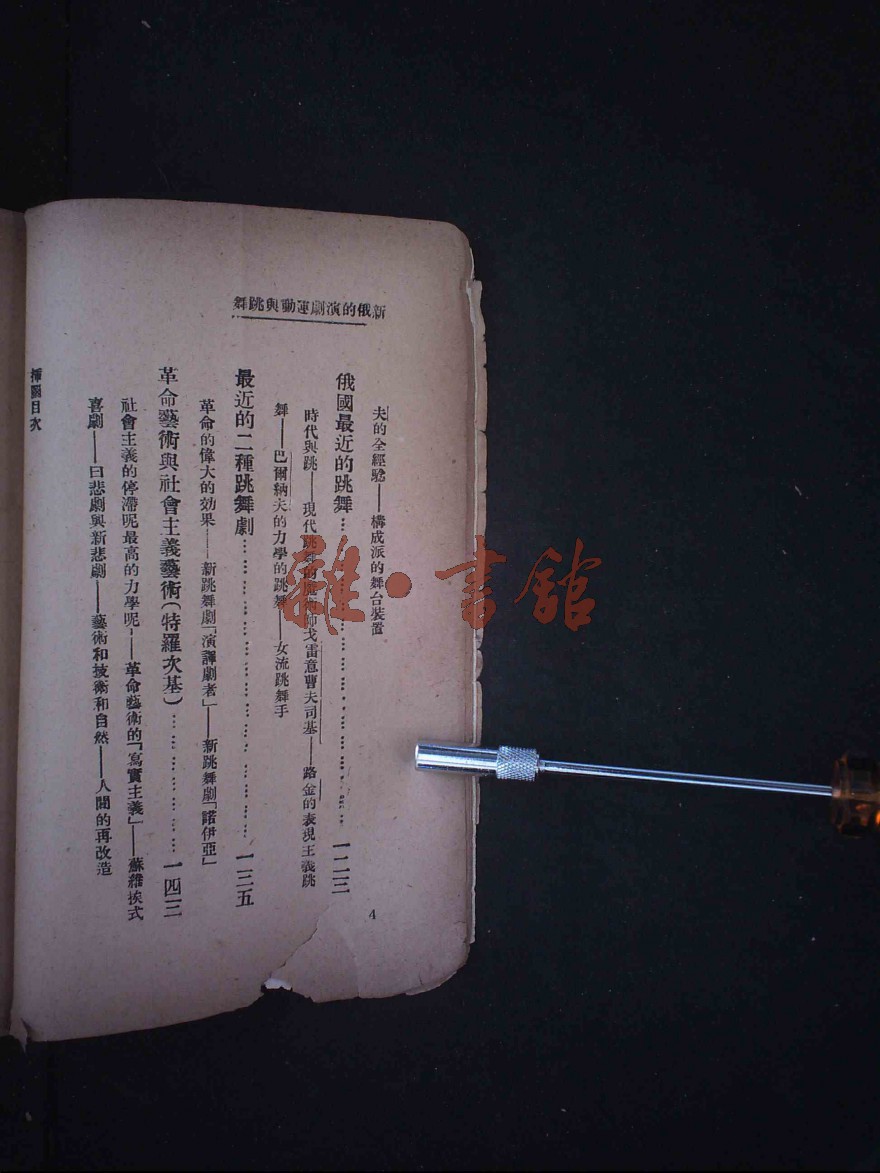 新俄的演劇運動與跳舞
夫的全經驗——構成派的舞台裝置
俄國最近的跳舞……………………一二三
時代與跳——現代跳舞的 師戈雷意曹夫司基——路金的表現主義跳
舞——巴爾納夫的力學的跳舞——女流跳舞手
最近的二種跳舞劇……………………一三五
革命的偉大的效果——新跳舞劇「演譯劇者」——新跳舞劇「諾伊亞」
革命藝術與社會主義藝術(特羅次基)……………一四三
社會主義的停滯呢最高的力學呢——革命藝術的「寫實主義」——蘇維埃式
喜劇——曰悲劇與新悲劇——藝術和技術和自然——人間的再改造
插圖目次
4
雜·書館